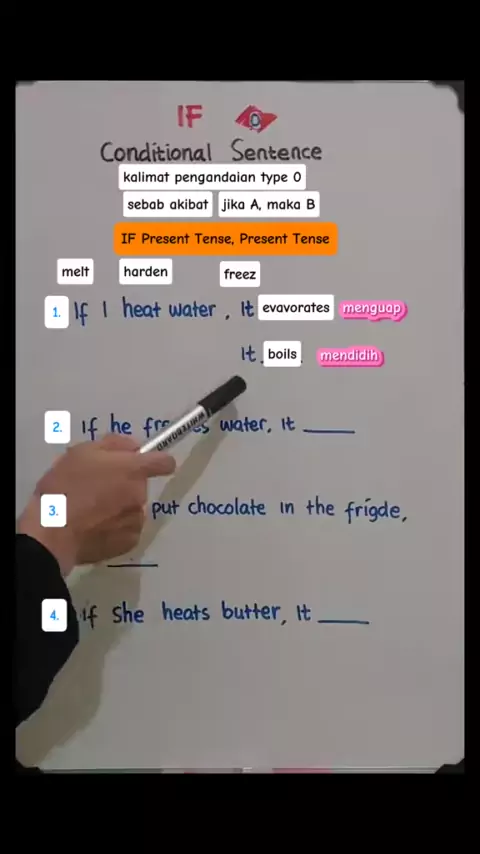 IF
Conditional Sentence
kalimat pengandaian type 0
sebab akibat jika A, maka B
IF Present Tense, Present Tense
melt harden freez
1. If I heat water, It evavorates menguap
It boils. mendidih
2. If he water, It ____
3. put chocolate in the frigde,
____
4. If She heats butter, It ____
WHITEBOARD